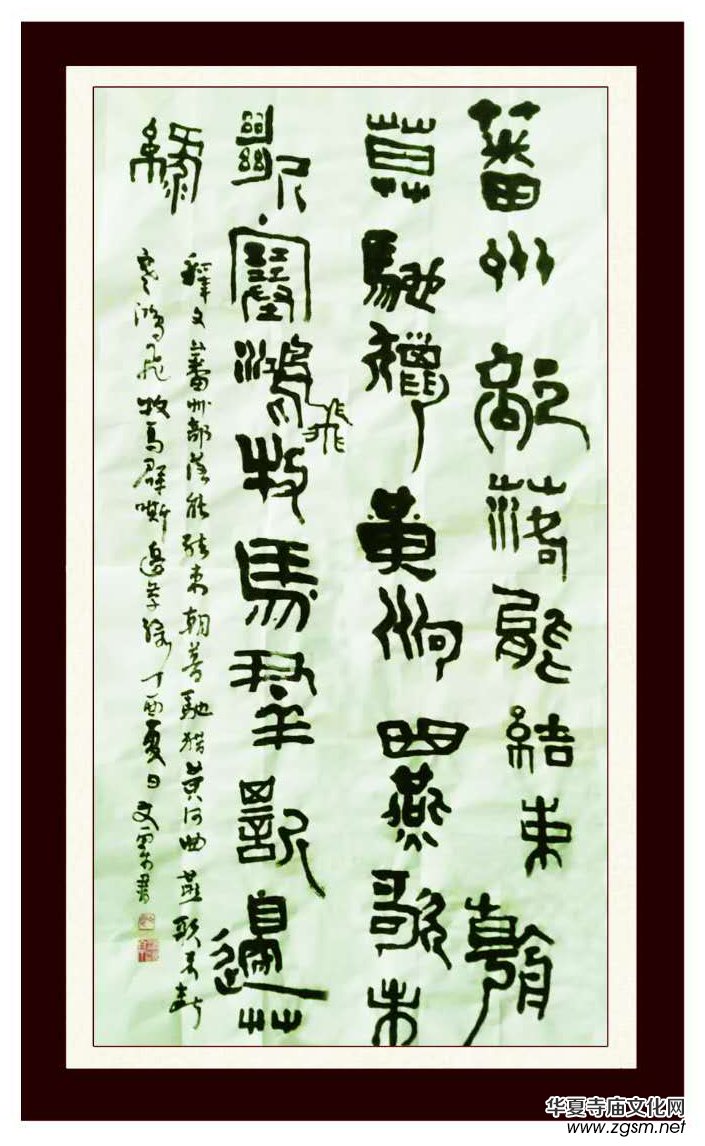 蕃州部落能結束朝
暮馳獵黃河曲燕歌未
斷塞鴻飛牧馬羣嘶邊艸
綠
釋文蕃州部落能結束朝暮馳猎黃河曲燕歌未斷
塞鴻飛牧馬群嘶邊草綠丁酉夏日文雲書
华夏寺庙文化网
www.zgsm.net